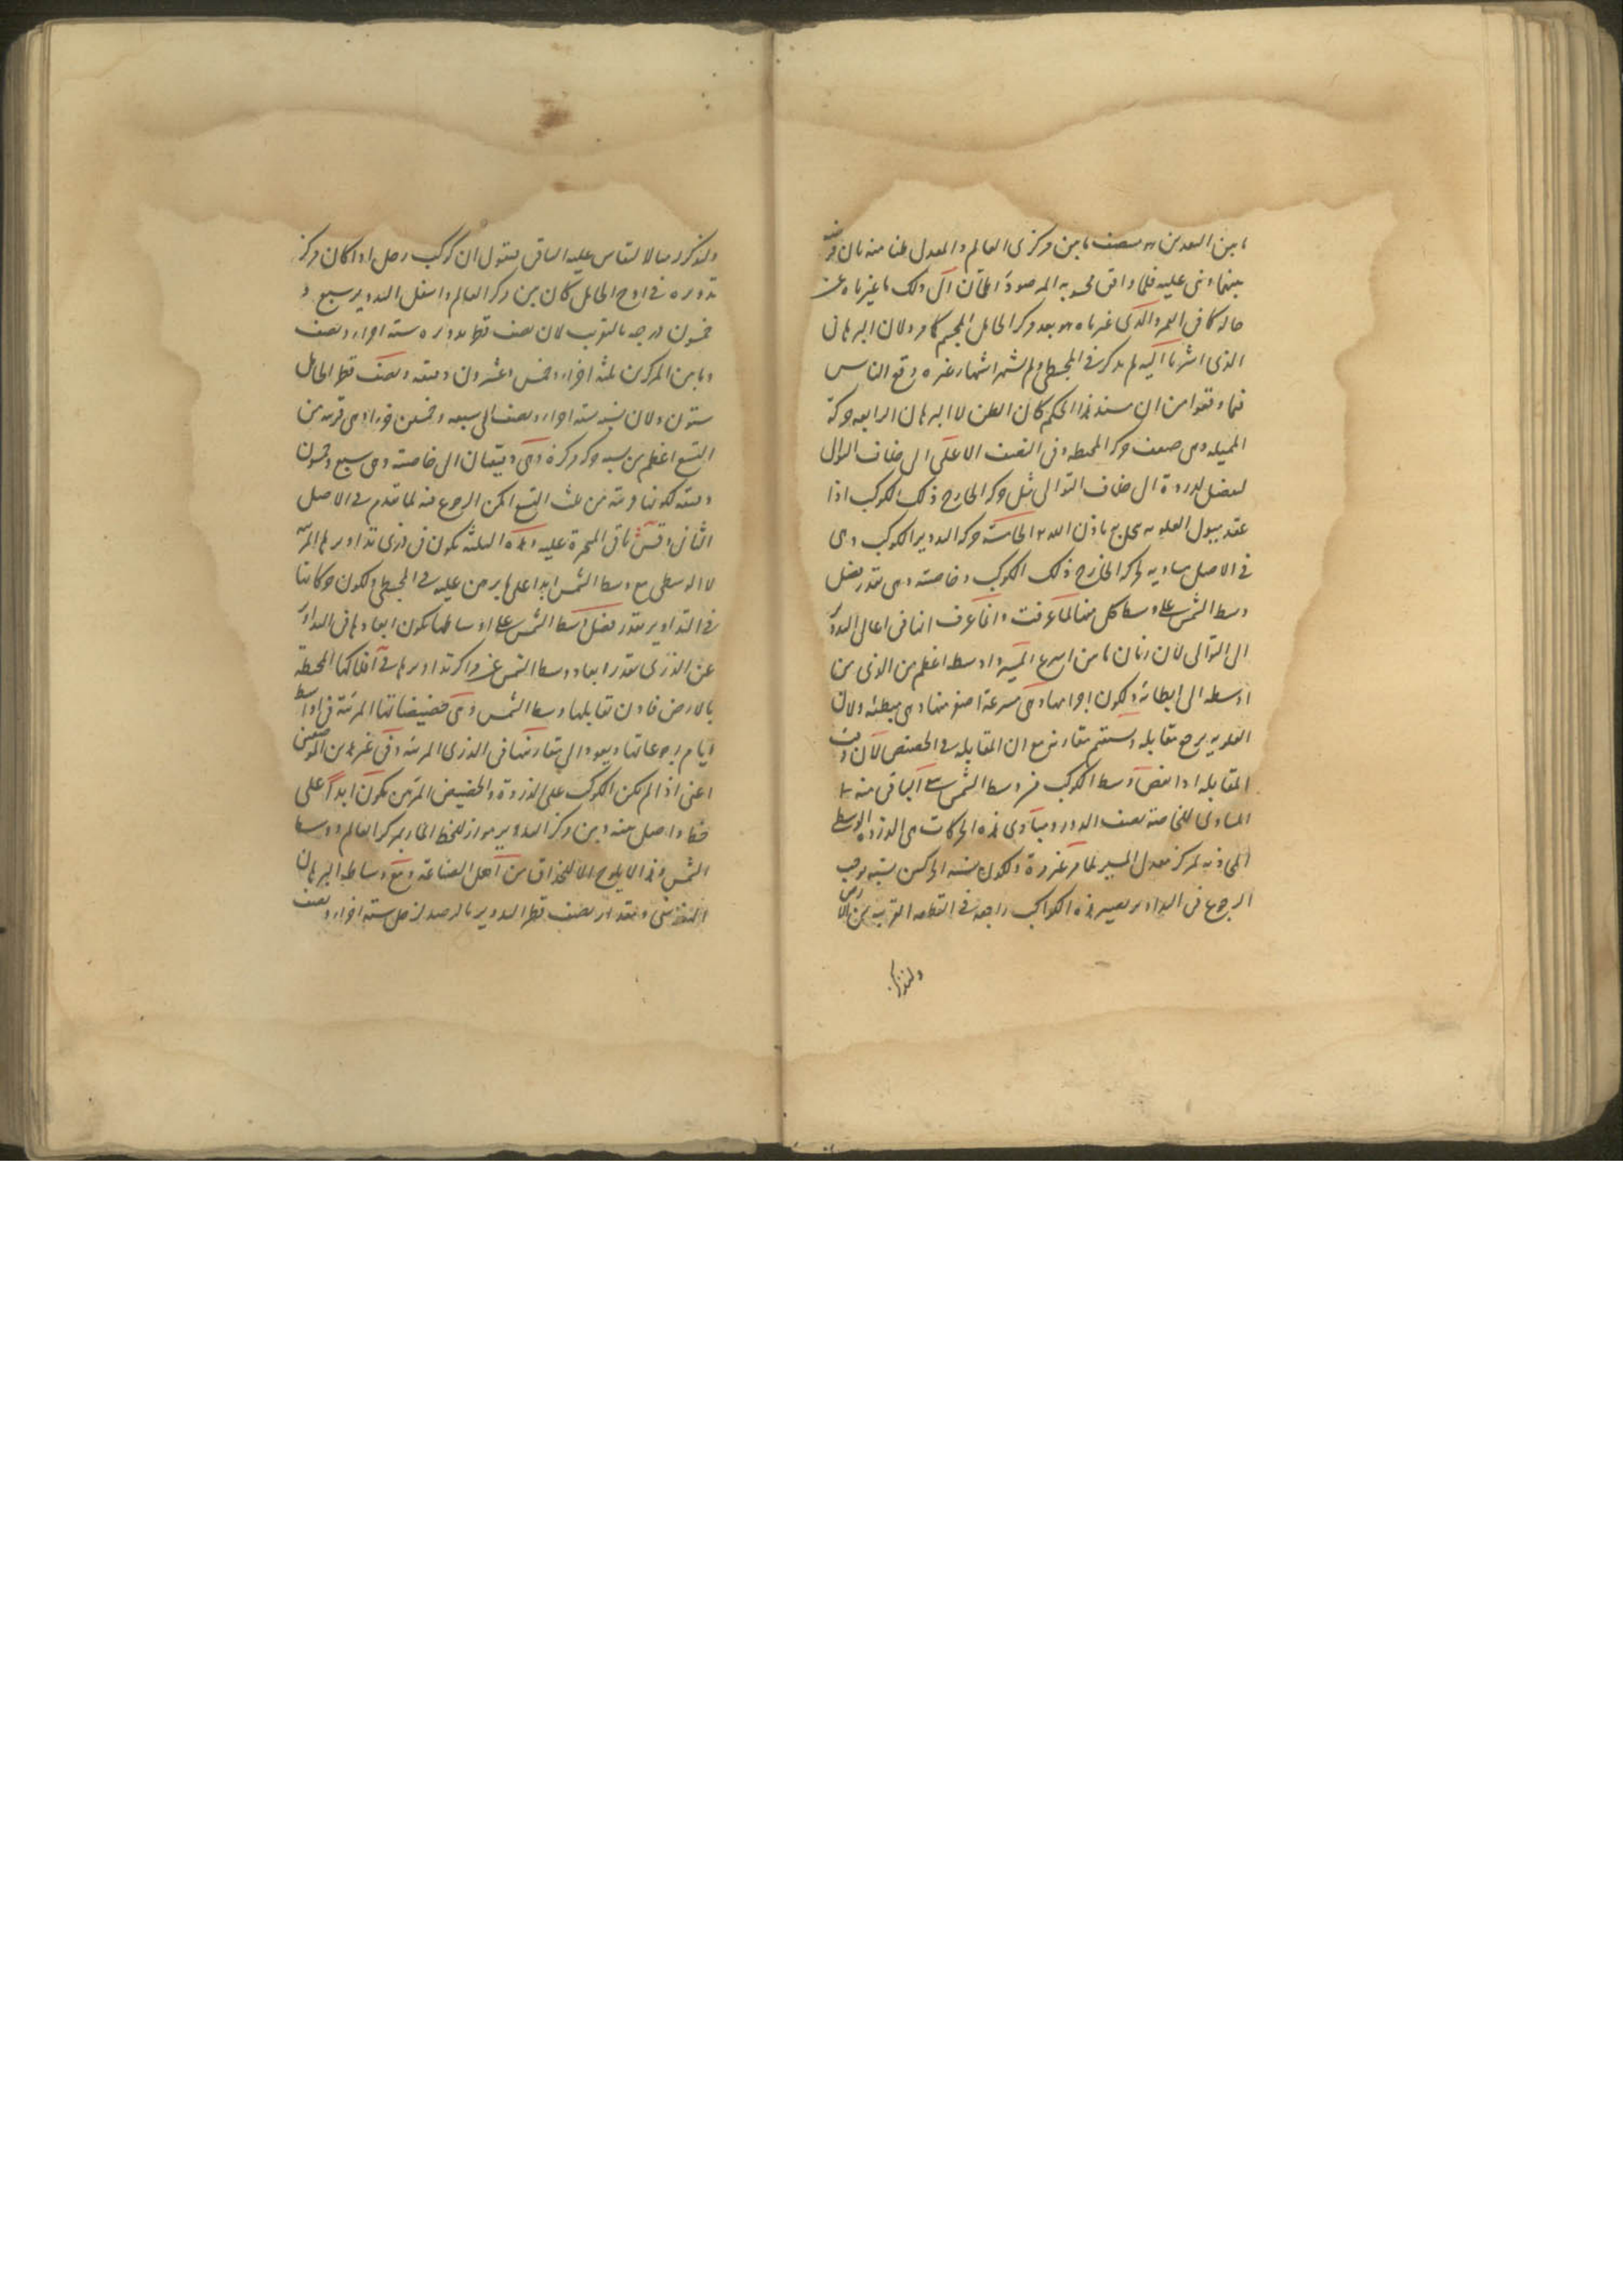 ما بين البعدين هو نصف ما بين مركزى العالم والمعدل ظنا منه بان
بينهما وبنى عليه فلما وافق محسوبه المرصود اطمان الى ذلك ما غيرناه عن
حاله كما فى القمر والذى غيرناه هو بعد مركز الحامل المجسم كما مر ولان البرهان
الذى اشرنا اليه لم يذكر فى المجسطى ولم يشتهر اشتهار غيره وقع الناس
فيما وقعوا من ان سند هذا الحكم كان الظن لا البرهان الرابعه حركة
المميله وهى ضعف حركة المحيطه وفى النصف الاعلى الى خلاف التوالى
ليفضل للذروة الى خلاف التوالى مثل حركة الخارج ذلك الكوكب اذا
باذن الله الخامسة حركة التدوير الكوكب وهى
فى الاصل مساويه لحركة الخارج ذلك الكوكب وخاصته وهى بقدر فضل
وسط الشمس على وسط كل منها لما عرفت وانما عرف انها فى اعالى التدوير
الى التوالى لان زمان ما من اسرع المسير الى اوسطه اعظم من الذى من
اوسطه الى ابطائه ولكون اجرامها وهى مسرعة اصغر منها وهى مبطئه ولان
العلويه يرجع مقابله ويستقيم مقارنه مع ان المقابله فى الحضيض لان وقت
المقابله اذا نقص وسط الكوكب من وسط الشمس الباقى منه
المساوى للخاصة نصف الدور ومبادى هذه الحركات هى الذروه الوسطى
المحاذيه لمركز معدل المسير لما مر غير مرة ولكون نسبة الحركتين نسبة توجب
الرجوع فى التداوير تصير هذه الكواكب راجعه فى القطعه القريبه من الارض
ولنذكر
ولنذكر مثالا لتقاس عليه الباقى فنقول ان كوكب زحل اذا كان مركز
تدويره فى اوج الحامل كان بين مركز العالم واسفل التدوير سبع و
خمسون درجه بالتقريب لان نصف قطر تدويره سته اجزاء ونصف
وما بين المركزين ثلثه اجزاء وخمس وعشرون دقيقه ونصف قطر الحامل
ستون ولان نسبه سته اجزاء ونصف الى سبعه وخمسين جزءا وهى قريبه من
التسع اعظم من نسبه حركه مركزه وهى دقيقتان الى خاصته وهى سبع وخمسون
دقيقه لكونها قريبة من ثلث التسع امكن الرجوع فيه لما تقدم فى الاصل
الثانى وقس باقى المتحيرة عليه وهذه الثلثه تكون فى ذرى تداويرها المرئيه
لا الوسطى مع وسط الشمس ابدا على ما برهن عليه فى المجسطى ولكون حركاتها
فى التداوير بقدر فضل وسط الشمس على اوساطها تكون ابعادها فى التداوير
عن الذرى بقدر ابعاد وسط الشمس عن مراكز تداويرها فى افلاكها المحيطه
بالارض فاذن تقابلها وسط الشمس وهى حضيضاتها المرئية فى اواسط
ايام رجوعاتها ويعود الى مقارنتها فى الذرى المرئيه وفى غير هذين الموضعين
اعنى اذا لم يكن الكوكب على الذروة والحضيض المرئيين يكون ابدا على
خط واصل بينه وبين مركز التدوير مواز للخط المار بمركز العالم ووسط
الشمس وهذا لا يلوح الا للحذاق من اهل الصناعة ومع وساطه البرهان
ومقدار نصف قطر التدوير بالرصد لزحل سته اجزاء ونصف